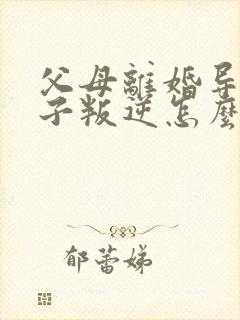 父母離婚导
子叛逆怎麼
郁蕾娣